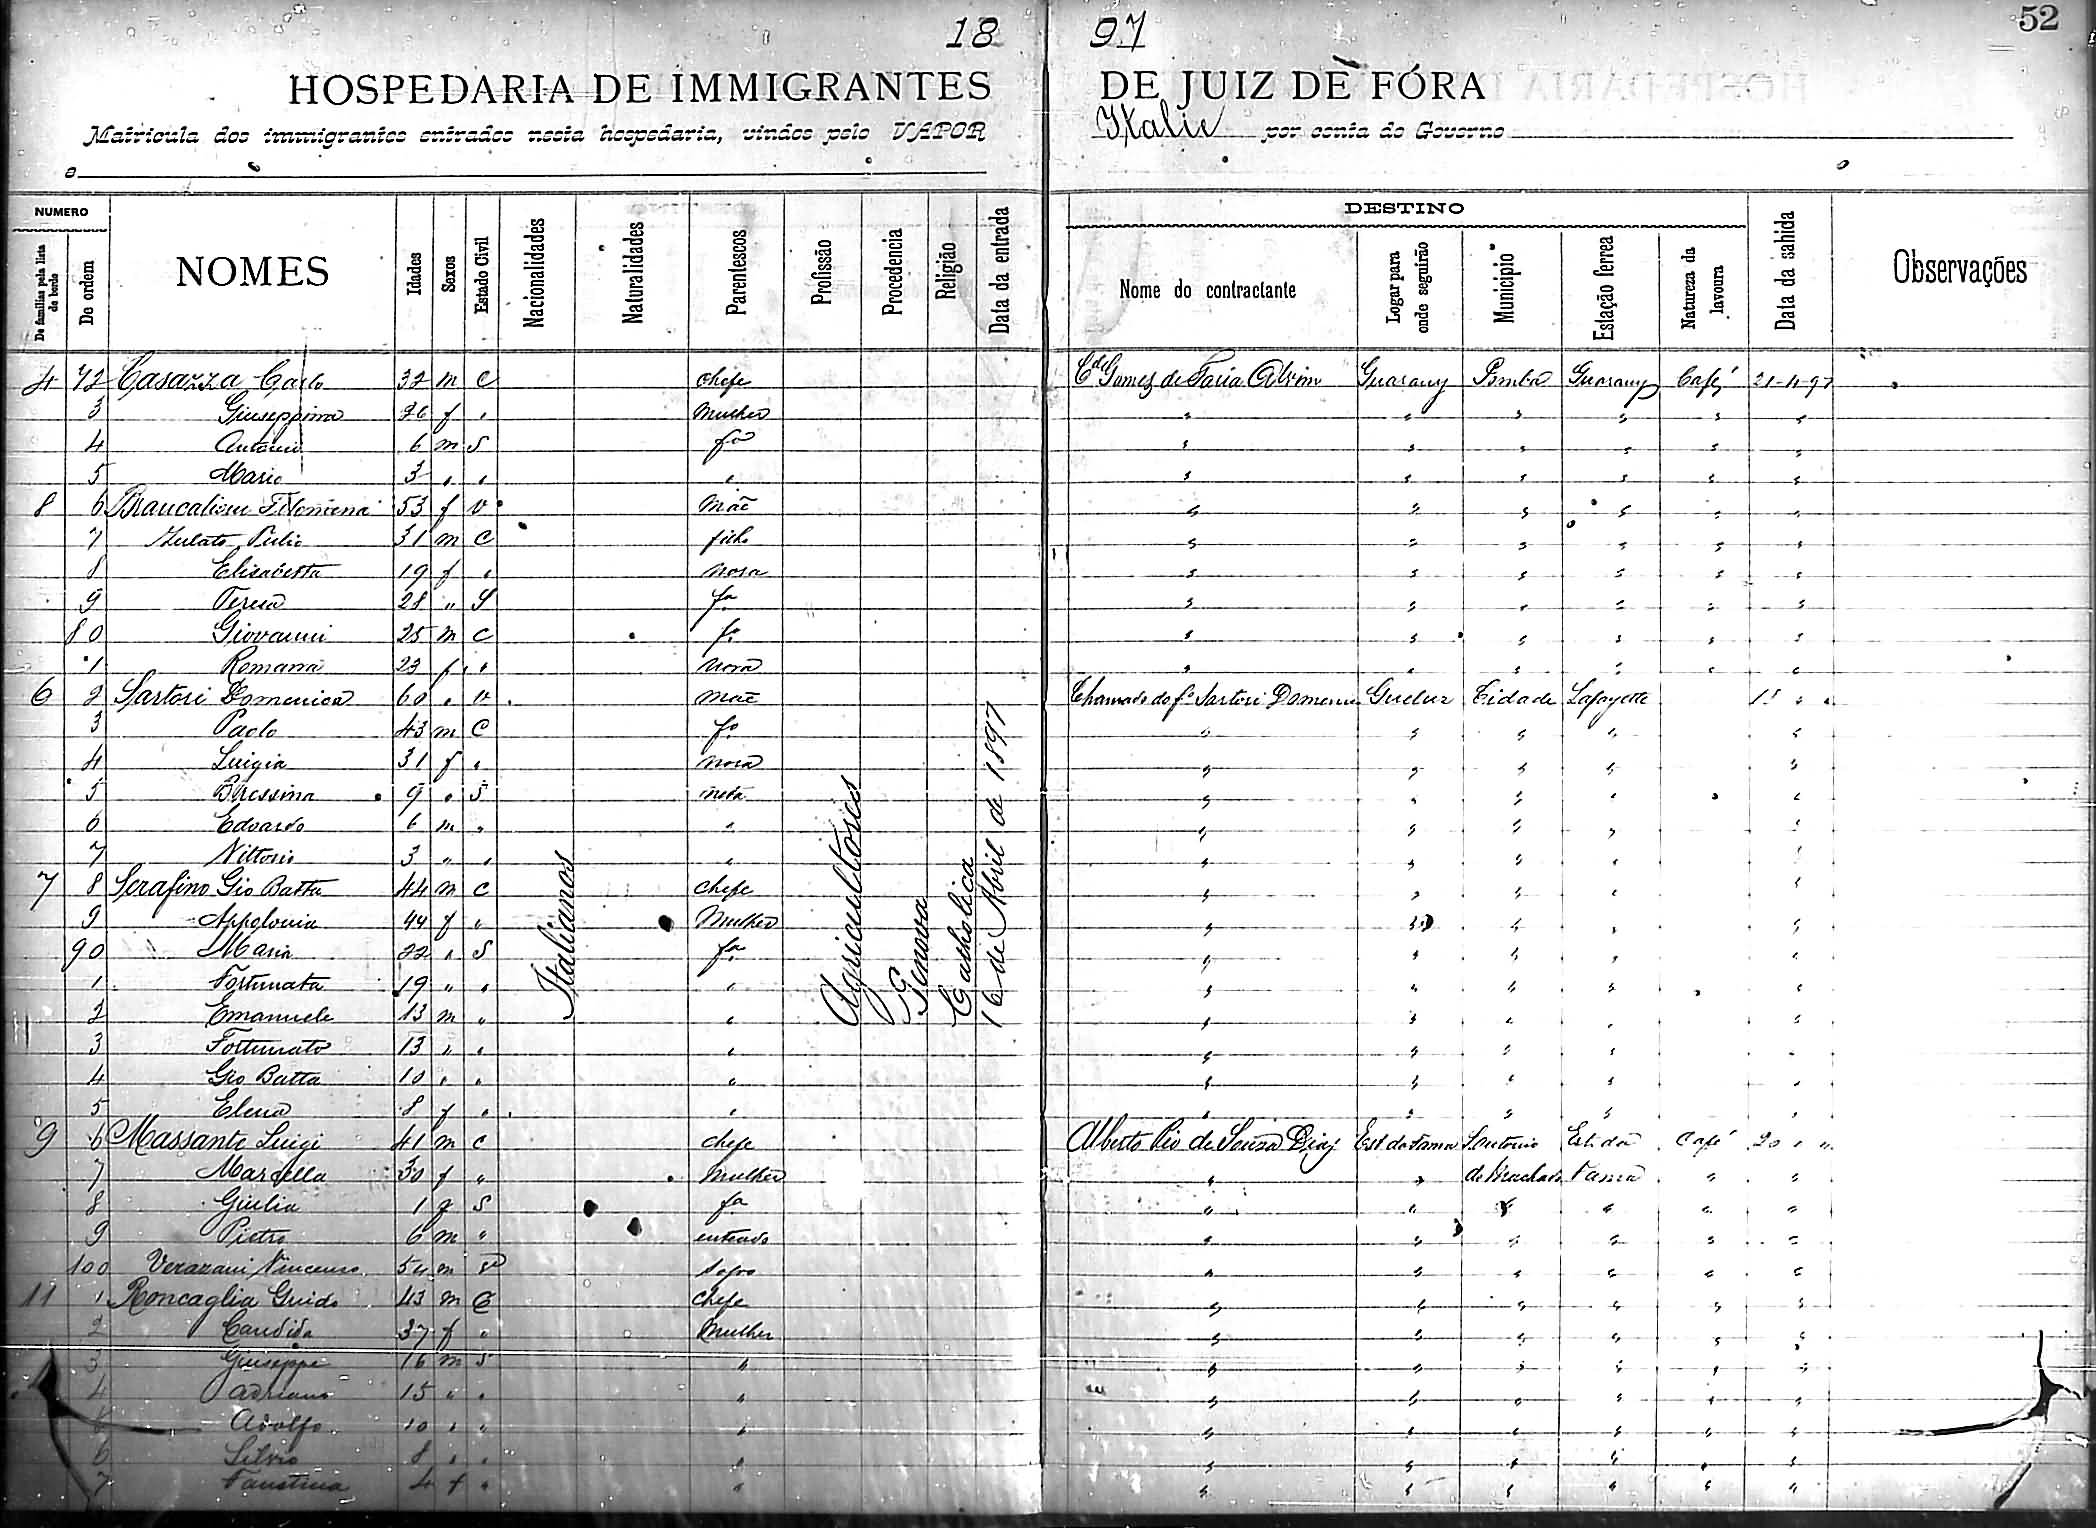 18 97 52
HOSPEDARIA DE IMMIGRANTES DE JUIZ DE FÓRA
Matricula dos immigrantes entrados nesta hospedaria, vindos pelo VAPOR Italie por conta do Governo
a
NUMERO DESTINO
De familias pela lista de bordo De ordem NOMES Idades Sexos Estado Civil Nacionalidades Naturalidades Parentescos Profissão Procedencia Religião Data da entrada Nome do contractante Logar para onde seguirão Municipio Estação ferrea Natureza da lavoura Data da sahida Observações
4 72 Casazza Carlo 32 m C chefe Gomez de Faria Alvim Guarany Pomba Guarany Café 21-4-97
3 Giuseppina 26 f " Mulher " " " " " "
4 Antonio 6 m S fo " " " " " "
5 Mario 3 " " " " " " " " "
8 6 Filomena 53 f V Mãe " " " " " "
7 31 m C filho " " " " " "
8 Elisabetta 19 f " nora " " " " " "
9 Teresa 28 " S fa " " " " " "
80 Giovanni 25 m C fo " " " " " "
1 Romana 23 f " nora " " " " " "
6 2 Sartori Domenica 60 " V Mãe Chamado do fo Sartori Gueluz Cidade Lafayette 18 " "
3 Paolo 43 m C fo " " " " "
4 Luigia 31 f " nora " " " " "
5 9 " S neta " " " " "
6 Edoardo 6 m " " " " " " "
7 Vittorio 3 " " " " " " " "
7 8 Serafino Gio Batta 44 m C chefe " " " " "
9 Appolonia 44 f " Mulher " " " " "
90 Maria 22 " S fa " " " " "
1 Fortunata 19 " " " " " " " "
2 Emanuele 13 m " " " " " " "
3 Fortunato 13 " " " " " " " "
4 Gio Batta 10 " " " " " " " "
5 Elena 8 f " " " " " " "
Italianos Agricultores Genova Catholica 16 de Abril de 1897
9 6 Massante Luigi 41 m C chefe Alberto Pio de Souza Dias Est. da Fama S Antonio Est. da Café 20 " "
7 Marcella 30 f " Mulher " " do Machado Fama " "
8 Giulia 1 f S fa " " " " " "
9 Pietro 6 m " enteado " " " " " "
100 Verazani Vincenzo 54 m V Sogro " " " " " "
11 1 Roncaglia Guido 43 m C chefe " " " " " "
2 Candida 37 f " Mulher " " " " " "
3 Giuseppe 16 m S " " " " " " "
4 Adriano 15 " " " " " " " " "
Adolfo 10 " " " " " " " " "
6 Silvio 8 " " " " " " " " "
7 Faustina 4 f " " " " " " " "